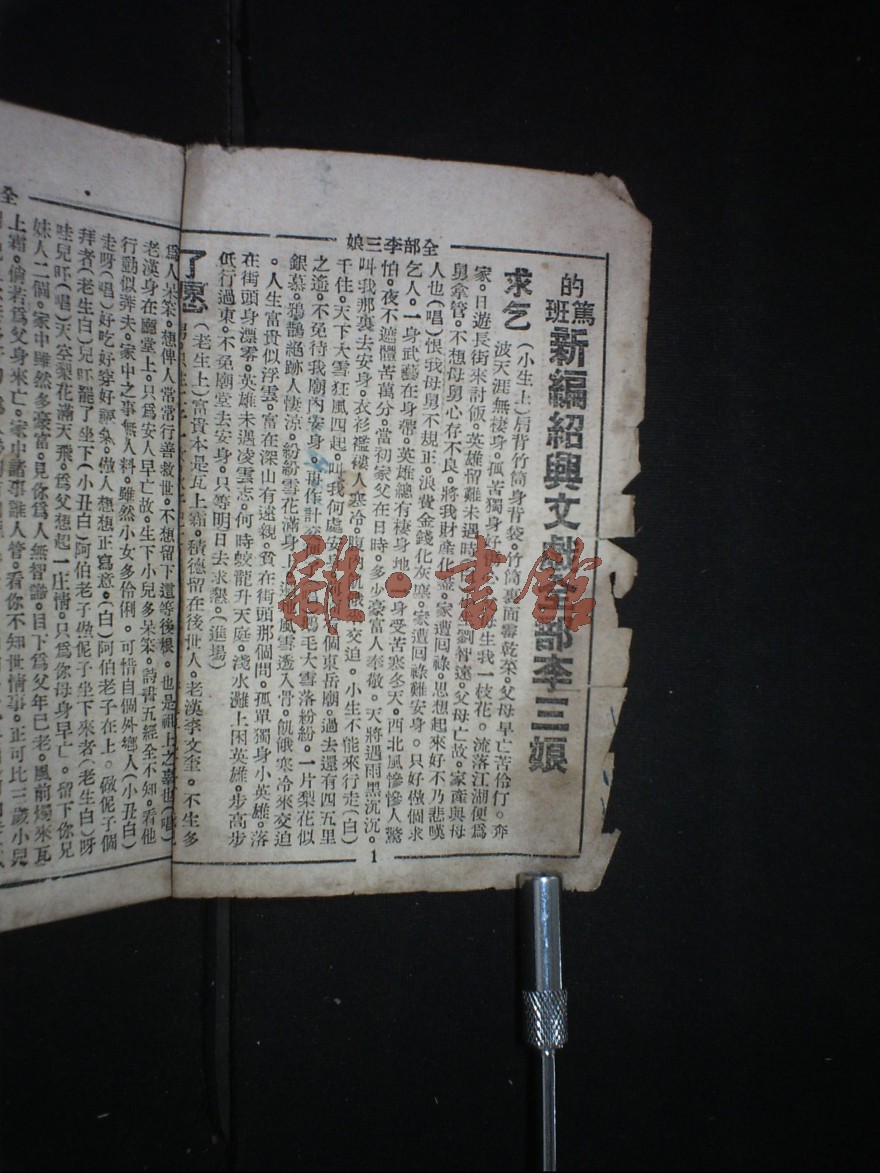 的篤班新編紹興文戲全部李三娘
求乞
(小生上)肩背竹筒身背袋。竹筒裏面霉乾菜。父母早亡苦伶仃。奔
波天涯無棲身。孤苦獨身好
母生我一枝花。流落江湖便爲
家。日遊長街來討飯。英雄留難未遇時
劉智遠。父母亡故。家產與母
舅拿管。不想母舅心存不良。將我財產化盡。家遭回祿。思想起來好不乃悲嘆
人也(唱)恨我母舅不規正。浪費金錢化灰塵。家遭回祿難安身。只好做個求
乞人。一身武藝在身帶。英雄總有棲身地。一身受苦寒冬天。西北風慘慘人驚
怕。夜不遮體苦萬分。當初家父在日時。多少豪富人奉敬。天將遇雨黑沉沉。
叫我那裏去安身。衣衫襤褸人寒冷。腹內飢餓
交迫。小生不能來行走(白)
千住。天下大雪狂風四起。叫我何處安身
個東岳廟。過去還有四五里
之遙。不免待我廟內安身。再作計較
鵝毛大雪落紛紛。一片梨花似
銀慕。鴉鵲絕跡人悽涼。紛紛雪花滿身
地風雪透入骨。飢餓寒冷來交迫
。人生富貴似浮雲。富在深山有遠親。貧在街頭那個問。孤單獨身小英雄。落
在街頭身漂零。英雄未遇凌雲志。何時蛟龍升天庭。淺水灘上困英雄。步高步
低行過東。不免廟堂去安身。只等明日去求懇。(進場)
了愿
(老生上)富貴本是瓦上霜。積德留在後世人。老漢李文奎。不生多
爲人呆笨。想俾人常常行善救世。不想留下還等後根。也是祖上之辜也(唱)
老漢身在廳堂上。只爲安人早亡故。生下小兒多呆笨。詩書五經全不知。看他
行動似莽夫。家中之事無人料。雖然小女多伶俐。可惜自個外鄉人(小丑白)
走呀(唱)好吃好穿好
想想正寫意。(白)阿伯老子在上。做伲子個
拜者(老生白)兒吓罷了坐下(小丑白)阿伯老子做伲子坐下來者(老生白)呀
哇兒吓(唱)天空梨花滿天飛。爲父想起一庄情。只爲你母身早亡。留下你兄
妹人二個。家中雖然多豪富。見你爲人無智謀。目下爲父年已老。風前燭來瓦
上霜。倘若爲父身來亡。家中諸事誰人管。看你不知世情事。正可比三歲小兒
全部李三娘
1
全
雜·書館